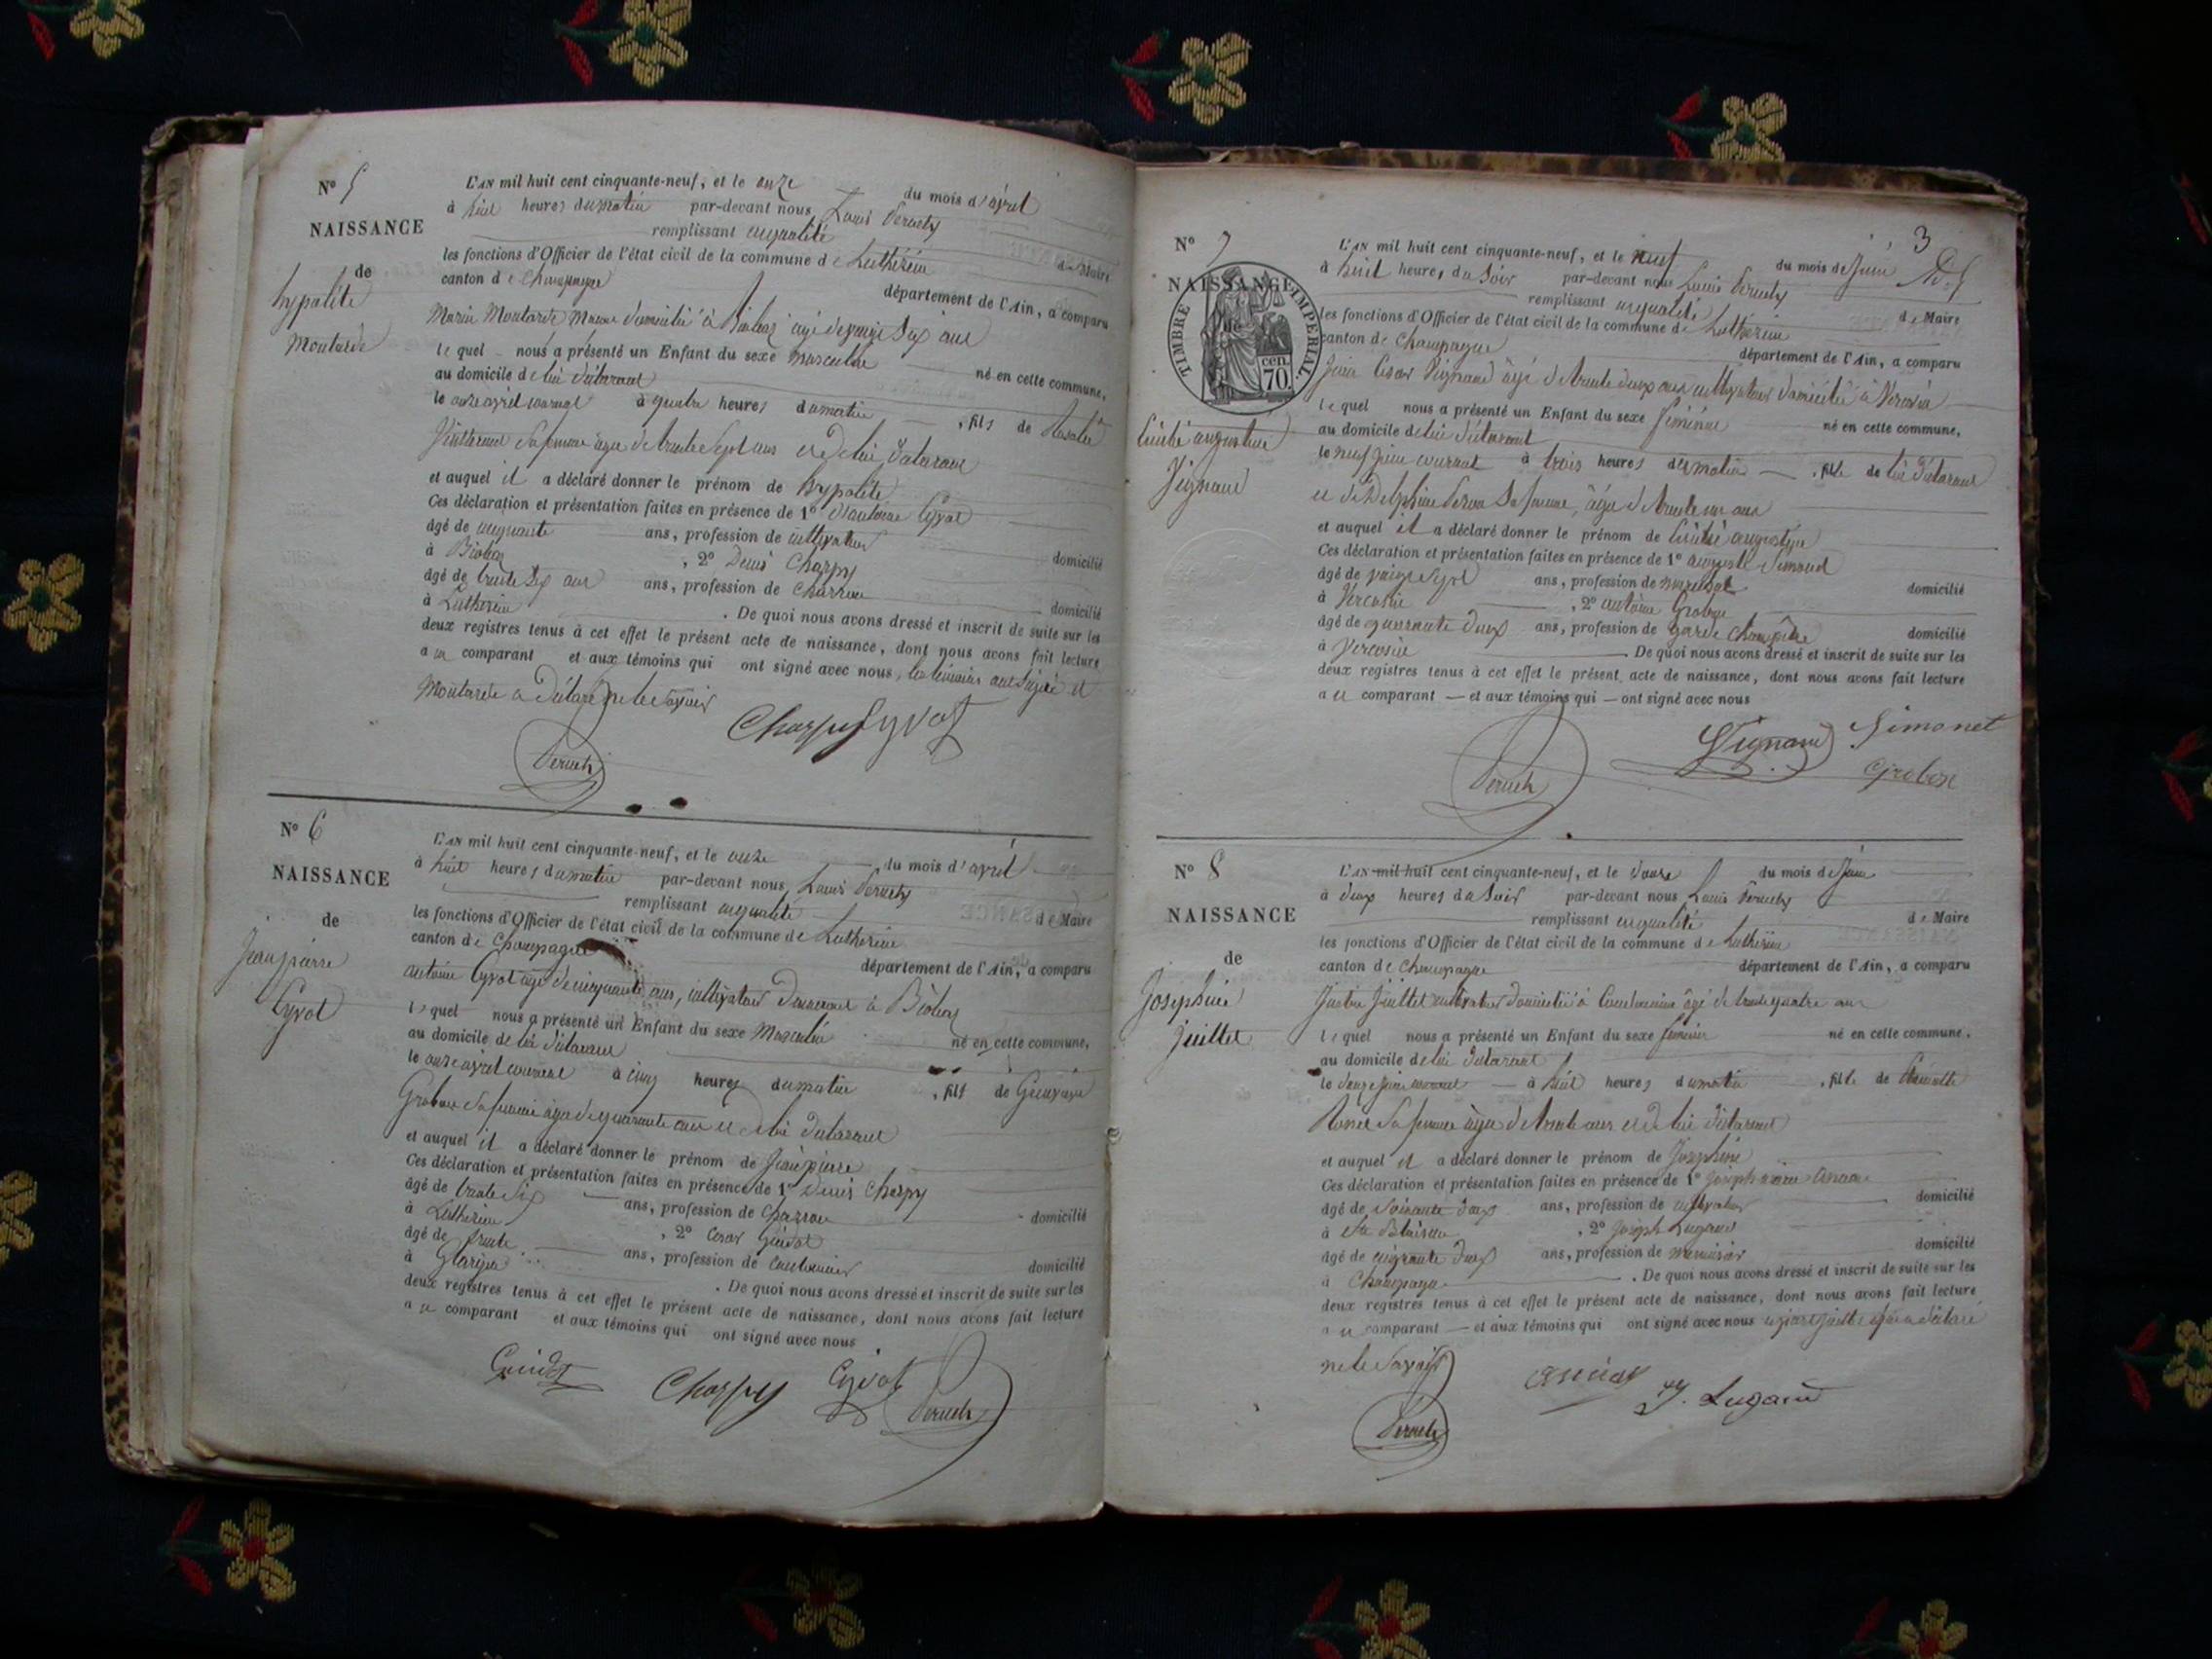 N° 5
NAISSANCE
de
hypolite
Moutarde
L'AN mil huit cent cinquante-neuf, et le onze du mois d'avril
à huit heures du matin par-devant nous Louis Peruch
remplissant en qualité de Maire
les fonctions d'Officier de l'état civil de la commune de Luthézieu
canton de Champagne département de l'Ain, a comparu
Moutarde domicilié à agé de
lequel nous a présenté un Enfant du sexe masculin né en cette commune,
au domicile de lui déclarant
le onze avril courant à quatre heures du matin, fils de
sa femme agée de trente sept ans et de lui déclarant
et auquel il a déclaré donner le prénom de hypolite
Ces déclaration et présentation faites en présence de 1° d'antoine Cyvot
âgé de cinquante ans, profession de cultivateur domicilié
à Bioléaz, 2° Denis Charpy
âgé de trente six ans ans, profession de Charron domicilié
à Luthézieu. De quoi nous avons dressé et inscrit de suite sur les
deux registres tenus à cet effet le présent acte de naissance, dont nous avons fait lecture
au comparant et aux témoins qui ont signé avec nous, les témoins ont signé et
Moutarde a déclaré ne le savoir
Charpy Cyvot
Peruch
N° 6
NAISSANCE
de
Jean pierre
Cyvot
L'AN mil huit cent cinquante-neuf, et le onze du mois d'avril
à huit heures du matin par-devant nous Louis Peruch
remplissant en qualité de Maire
les fonctions d'Officier de l'état civil de la commune de Luthézieu
canton de Champagne département de l'Ain, a comparu
antoine Cyvot agé de cinquante ans, cultivateur demeurant à Bioléaz
lequel nous a présenté un Enfant du sexe Masculin né en cette commune,
au domicile de lui déclarant
le onze avril courant à cinq heures du matin, fils de
Grobon sa femme agée de quarante ans et de lui déclarant
et auquel il a déclaré donner le prénom de Jean pierre
Ces déclaration et présentation faites en présence de 1° Denis Charpy
âgé de trente six ans, profession de Charron domicilié
à Luthézieu, 2° César Guidot
âgé de trente ans, profession de domicilié
à. De quoi nous avons dressé et inscrit de suite sur les
deux registres tenus à cet effet le présent acte de naissance, dont nous avons fait lecture
au comparant et aux témoins qui ont signé avec nous
Guidot Charpy Cyvot Peruch
3
N° 7
NAISSANCE
TIMBRE IMPERIAL.
cen.
70.
augustine
Vignand
L'AN mil huit cent cinquante-neuf, et le neuf du mois de Juin
à huit heures du Soir par-devant nous Louis Peruch
remplissant en qualité de Maire
les fonctions d'Officier de l'état civil de la commune de Luthézieu
canton de Champagne département de l'Ain, a comparu
César Vignand agé de trente deux ans cultivateur domicilié à
lequel nous a présenté un Enfant du sexe féminin né en cette commune,
au domicile de lui déclarant
le neuf juin courant à trois heures du matin, fille de lui déclarant
et de Delphine sa femme, agée de trente un ans
et auquel il a déclaré donner le prénom de augustine
Ces déclaration et présentation faites en présence de 1° auguste
âgé de vingt sept ans, profession de domicilié
à, 2° antoine Grobon
âgé de quarante deux ans, profession de garde champêtre domicilié
à De quoi nous avons dressé et inscrit de suite sur les
deux registres tenus à cet effet le présent acte de naissance, dont nous avons fait lecture
au comparant — et aux témoins qui — ont signé avec nous
Vignand Simonet
Peruch Grobon
N° 8
NAISSANCE
de
Josephine
Juillet
L'AN mil huit cent cinquante-neuf, et le douze du mois de Juin
à deux heures du Soir par-devant nous Louis Peruch
remplissant en qualité de Maire
les fonctions d'Officier de l'état civil de la commune de Luthézieu
canton de Champagne département de l'Ain, a comparu
Juillet cultivateur domicilié à agé de trente quatre ans
lequel nous a présenté un Enfant du sexe féminin né en cette commune.
au domicile de lui déclarant
le douze juin courant — à huit heures du matin, fille de
sa femme agée de trente ans et de lui déclarant
et auquel il a déclaré donner le prénom de Josephine
Ces déclaration et présentation faites en présence de 1° Joseph
âgé de soixante deux ans, profession de cultivateur domicilié
à, 2° Joseph Lugand
âgé de cinquante deux ans, profession de menuisier domicilié
à Champagne. De quoi nous avons dressé et inscrit de suite sur les
deux registres tenus à cet effet le présent acte de naissance, dont nous avons fait lecture
au comparant — et aux témoins qui ont signé avec nous excepté juillet qui a déclaré
ne le savoir
J. Lugand
Peruch